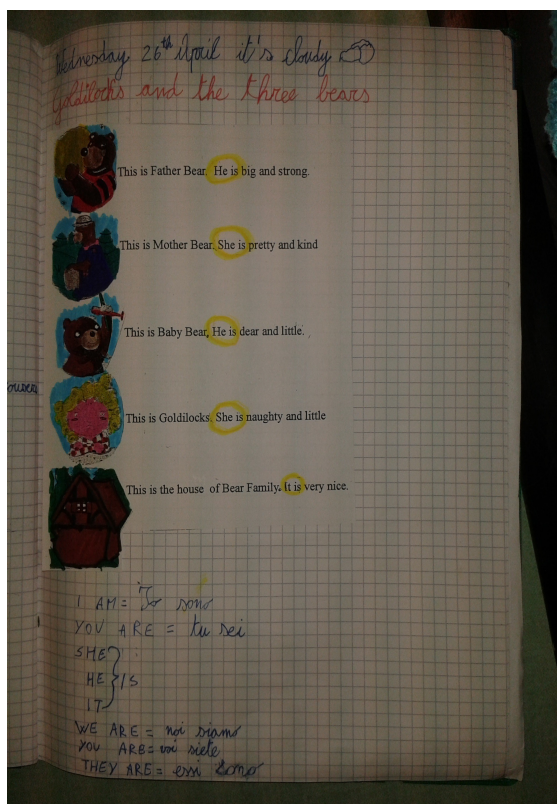 Wednesday 26th April it's cloudy
Goldilocks and the three bears
This is Father Bear. He is big and strong.
This is Mother Bear. She is pretty and kind
This is Baby Bear, He is dear and little.
This is Goldilocks. She is naughty and little
This is the house of Bear Family. It is very nice.
I AM = Io sono
YOU ARE = tu sei
SHE
HE IS
IT
WE ARE = noi siamo
YOU ARE = voi siete
THEY ARE = essi sono